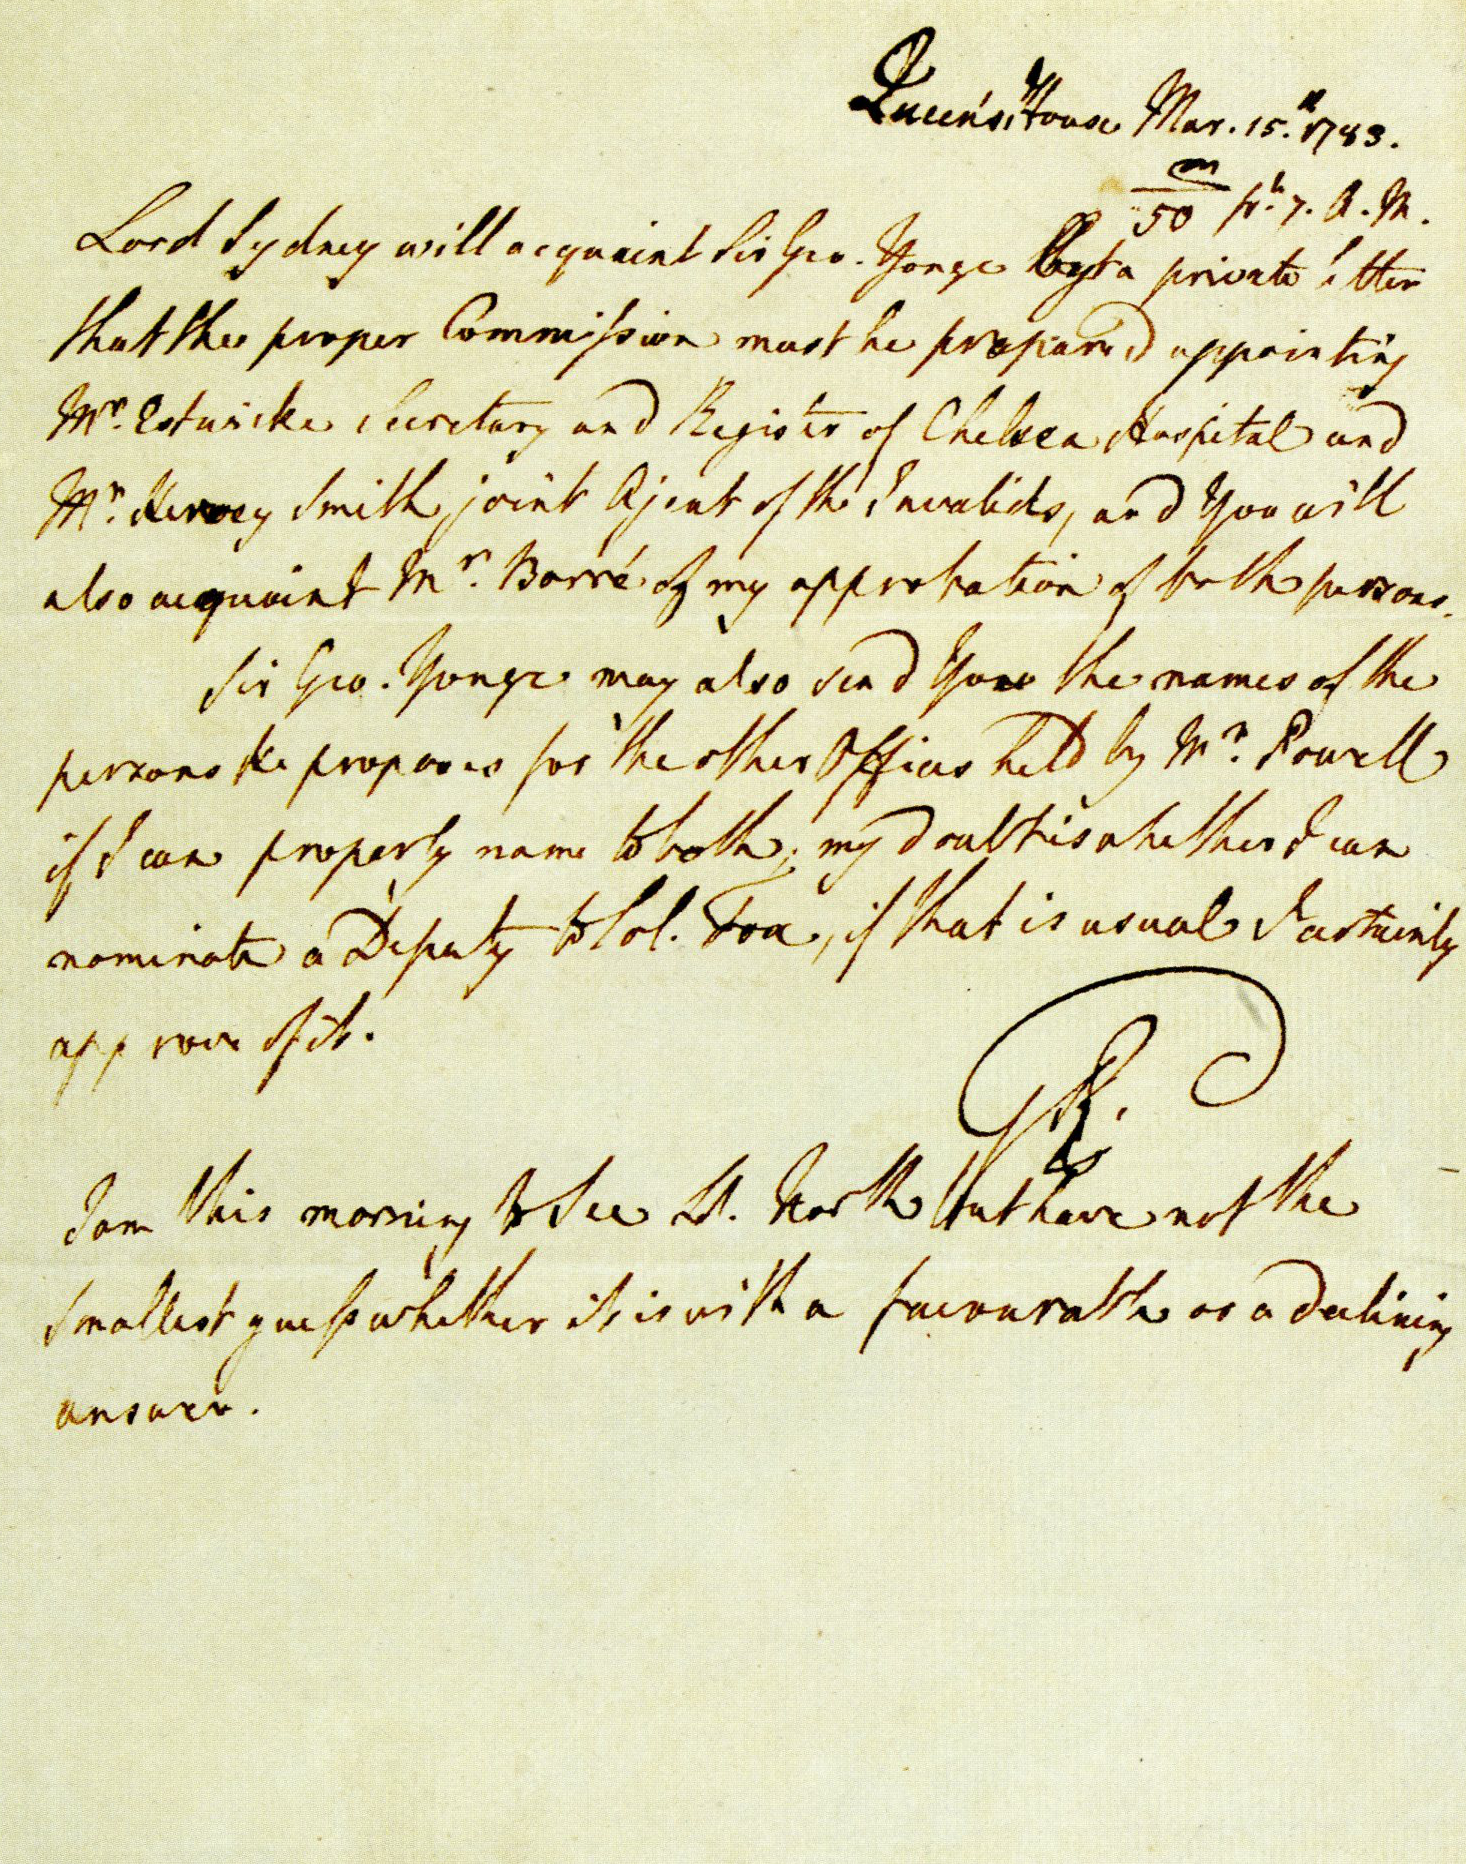 Queen's House Mar. 15.th 1783.
m
50 pt. 7. A. M.
Lord Sydney will acquaint Sir Geo. Yonge by a private letter
that the proper Commission must be prepared appointing
Mr. Estwicke Secretary and Register of Chelsea Hospital and
Mr. Hervey Smith joint Agent of the Invalids, and You will
also acquaint Mr. Barré of my approbation of both persons.
Sir Geo. Yonge may also send You the names of the
persons he proposes for the other Offices held by Mr. Powell
if I can properly name to both; my doubt is whether I can
nominate a Deputy to Col. Fox, if that is usual I certainly
approve of it.
GR.
I am this morning to See Ld. North but have not the
smallest guess whether it is with a favourable or a declining
answer.